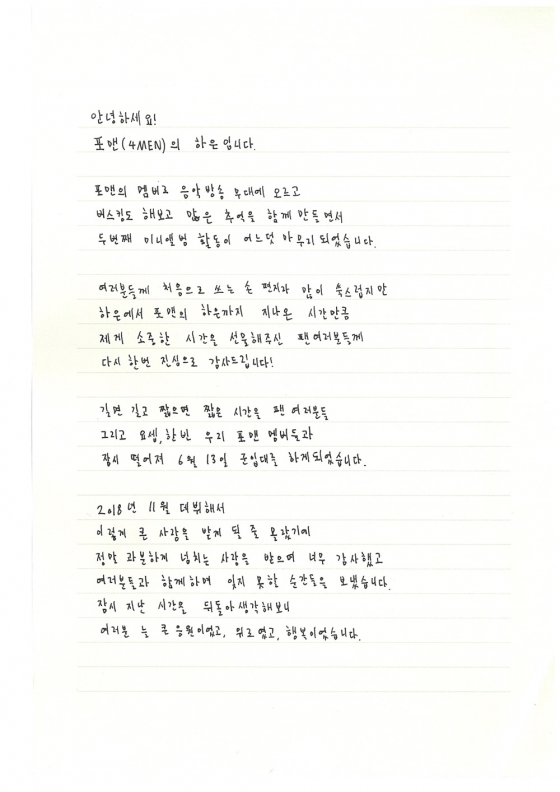 안녕하세요!
포맨(4MEN)의 하은입니다.
포맨의 멤버로 음악방송 무대에 오르고
버스킹도 해보고 많은 추억을 함께 만들면서
두번째 미니앨범 활동이 어느덧 마무리되었습니다.
여러분들께 처음으로 쓰는 손 편지라 많이 쑥스럽지만
하은에서 포맨의 하은까지 지나온 시간만큼
제게 소중한 시간을 선물해주신 팬여러분들께
다시 한번 진심으로 감사드립니다!
길면 길고 짧으면 짧은 시간을 팬 여러분들
그리고 요셉, 한빈 우리 포맨 멤버들과
잠시 떨어져 6월 13일 군입대를 하게되었습니다.
2018년 11월 데뷔해서
이렇게 큰 사랑을 받게 될 줄 몰랐기에
정말 과분하게 넘치는 사랑을 받으며 너무 감사했고
여러분들과 함께하며 잊지 못할 순간들을 보냈습니다.
잠시 지난 시간을 뒤돌아 생각해보니
여러분 늘 큰 응원이었고, 위로였고, 행복이었습니다.